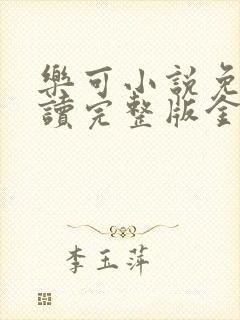 樂可小說免
讀完整版全
李玉萍